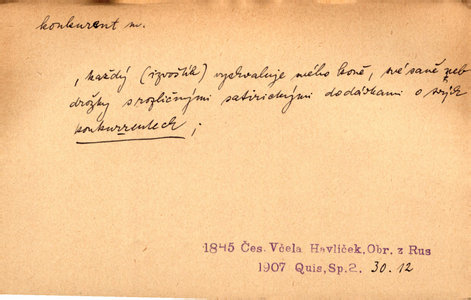 konkurent m.
„každý (izvoštík) vychvaluje svého koně, své saně neb
drožky s rozličnými satirickými dodávkami o svých
konkurrentech;
1845 Čes. Včela Havlíček, Obr. z Rus
1907 Quis, Sp. 2. 30.12